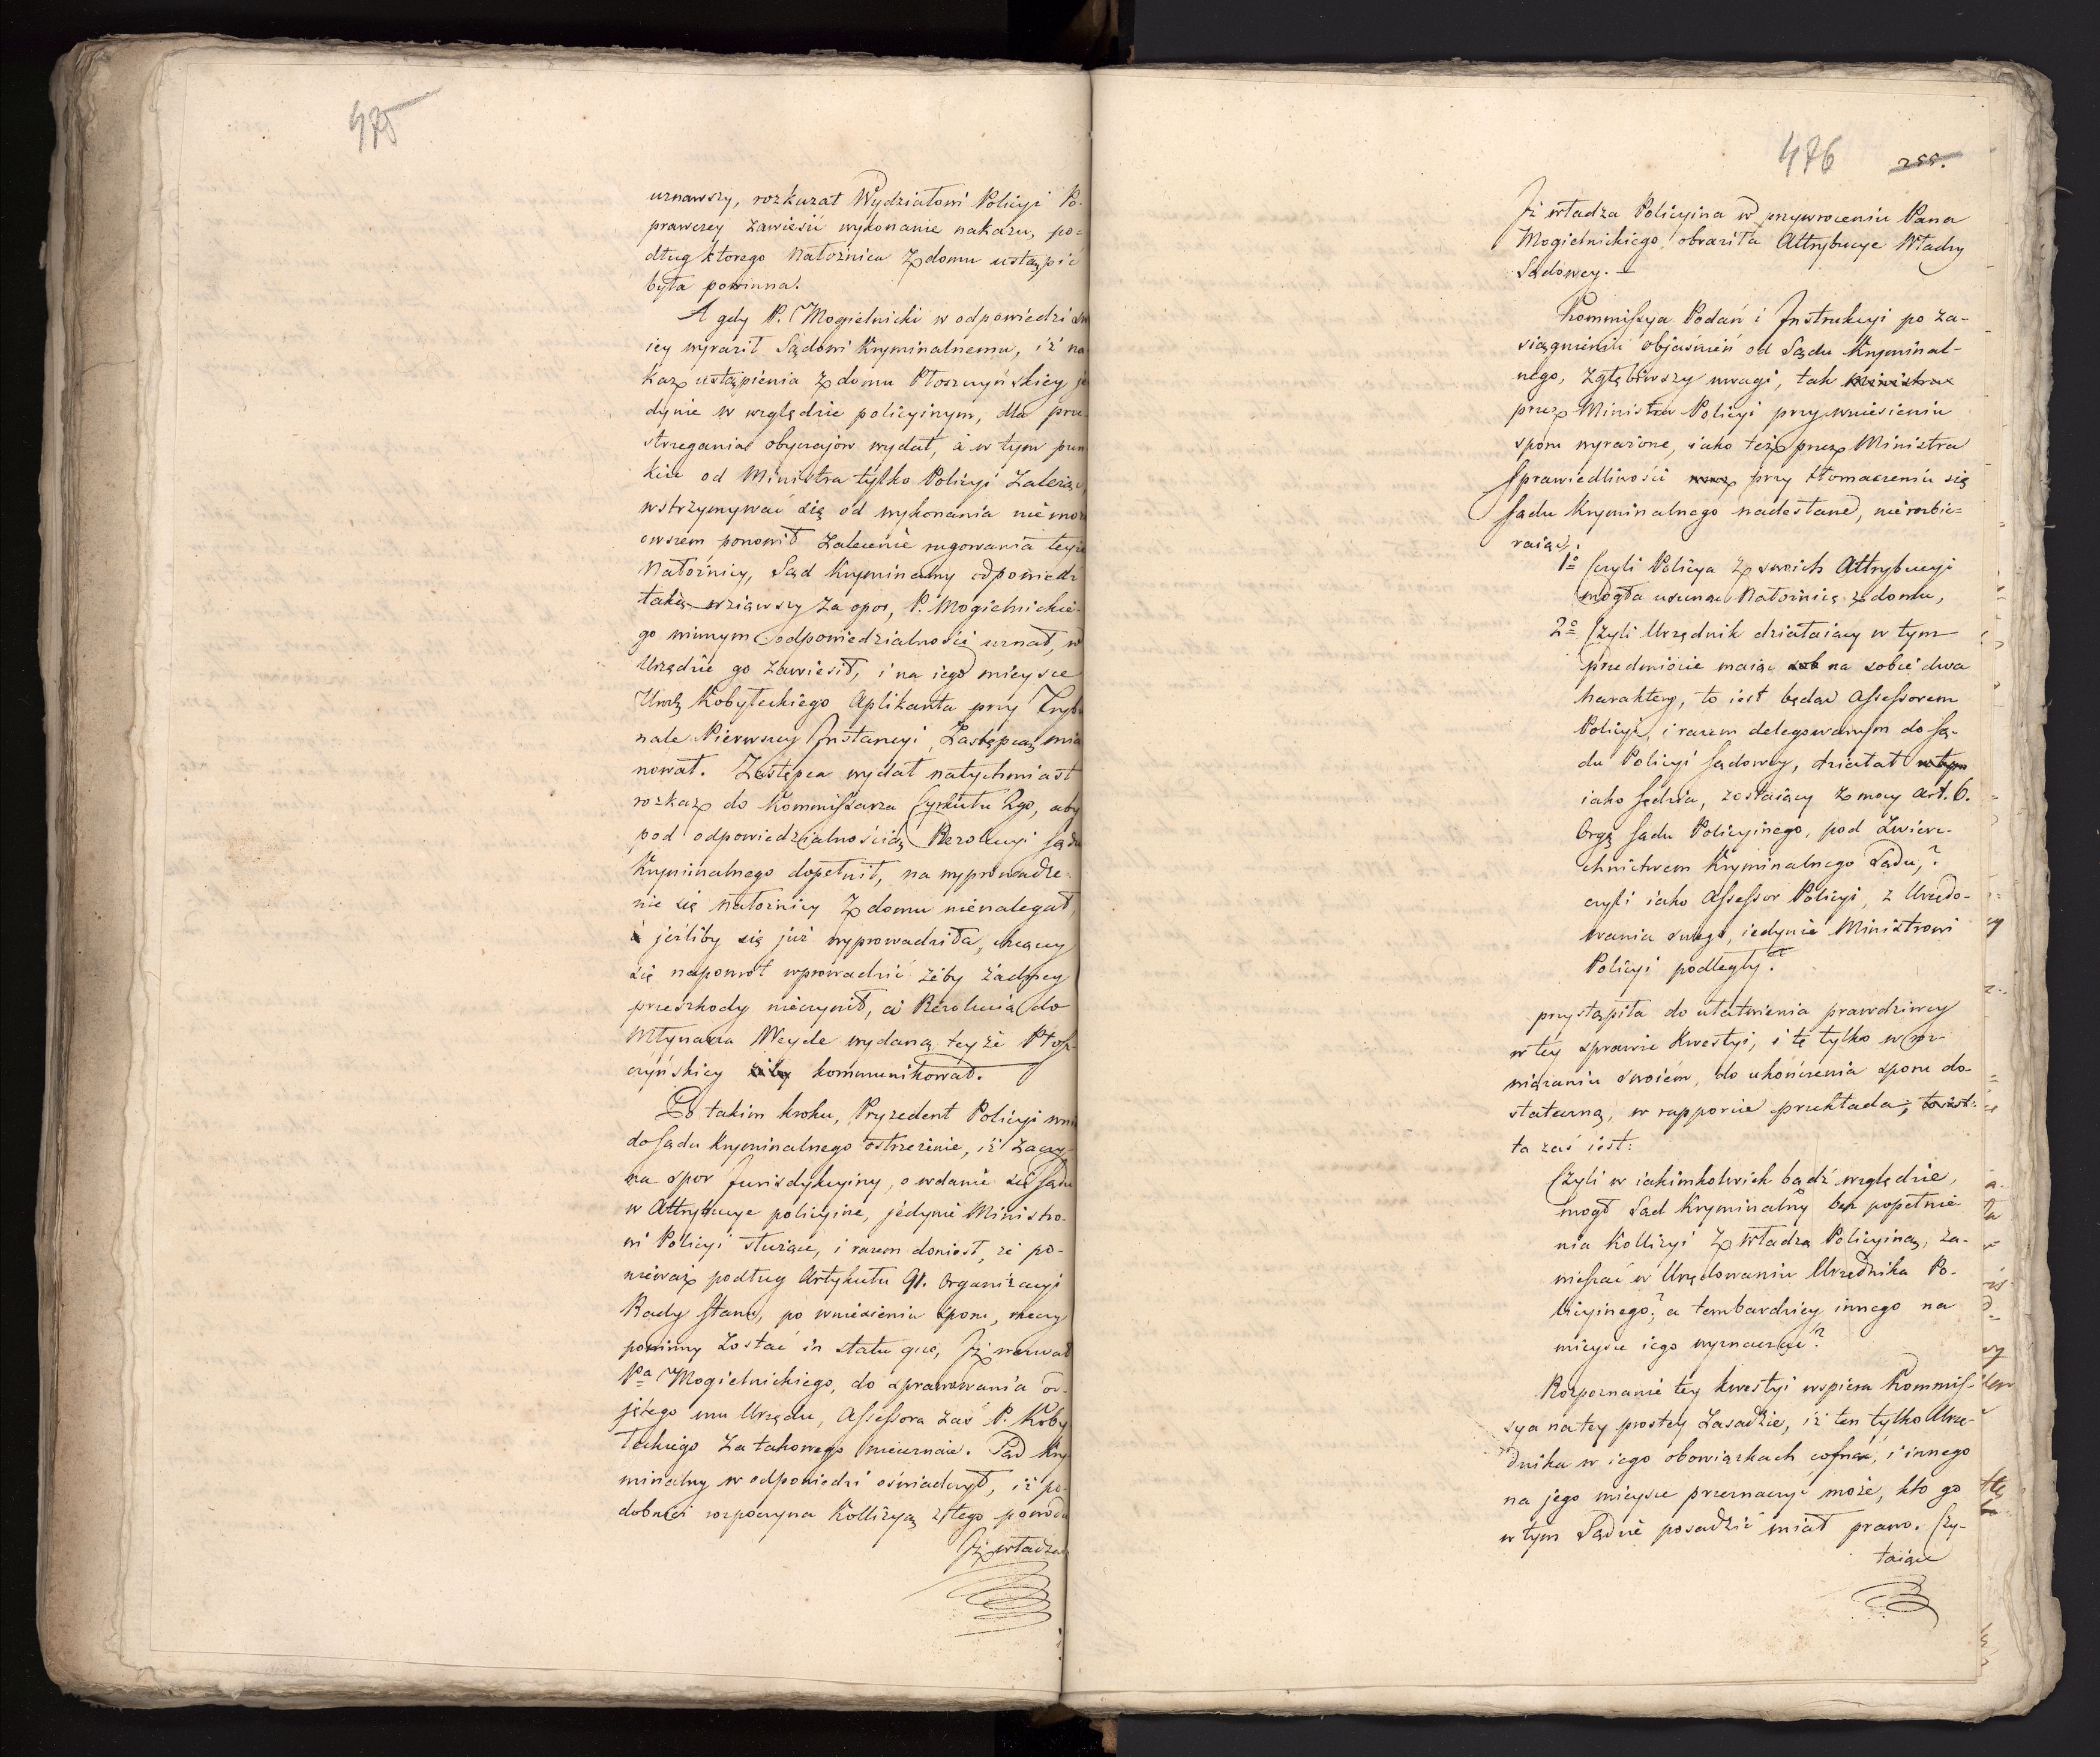 475
uznawszy, rozkazał Wydziałowi Policyi Po-
prawczey zawiesić wykonanie nakazu, po=
dług ktorego Nałożnica z domu ustąpić
była powinna.
A gdy P. Mogielnicki w odpowiedzi sw
iey wyraził Sądowi Kryminalnemu, iż na
kaz ustąpienia z domu Płoszczyńskiey je
dynie w względzie policyinym, dla prze
strzegania obyczajów wydał, a w tym pun
kcie od Ministra tylko Policyi zależąc,
wstrzymywać się od wykonania niemoże
owszem ponowił zalecenie rugowania teyże
Nałożnicy, Sąd Kryminalny odpowiedź
taką wziąwszy za opor, P. Mogielnickie-
go winnym odpowiedzialności uznał, w
Urzędzie go zawiesił, i na iego mieysce
Urodz Kobyłeckiego Aplikanta przy Trybu
nale Pierwszey Instancyi, Zastępcą mia
nował. Zastępca wydał natychmiast
rozkaz do Kommissarza Cyrkułu 2go, aby
pod odpowiedzialnością Rezolucyi Sądu
Kryminalnego dopełnił, na wyprowadze-
nie się Nałożnicy z domu nienalegał,
a jeśliby się już wyprowadziła, chcącey
się napowrot wprowadzić żeby żadney
przeszkody nieczynił, a Rezolucią do
Młynarza Weyde wydaną teyże Płosz-
czyńskiey kommunikował.
Po takim kroku, Prezydent Policyi wni
do Sądu Kryminalnego ostrzeżenie, iż zaczy-
na spor Jurisdykcyiny, o wdanie się Sądu
w Attrybucye policyine, jedynie Ministro-
wi Policyi służące, i razem doniosł, że po-
nieważ podług Artykułu 91. Organizacyi
Rady Stanu, po wniesieniu sporu, rzeczy
powinny zostać in statu quo, Iż wezwał
Pa Mogielnickiego, do sprawowania od-
jętego mu Urzędu, Assessora zaś P. Koby
łeckiego za takowego nieuznaie. Sąd Kry
minalny w odpowiedzi oświadczył, iż po-
dobnież rozpoczyna Kollizyą z tego powodu
Iż władza
476 255.
Iż władza Policyina w przywroceniu Pana
Mogielnickiego, obraziła Attrybucye Władzy
Sądowey. —
Kommissya Podań i Instrukcyi po za-
siągnieniu objaśnień od Sądu Kryminal-
nego, zgłębiwszy uwagi, tak Ministra
przez Ministra Policyi przy wniesieniu
sporu wyrażone, iako też przez Ministra
Sprawiedliwości przy tłomaczeniu się
Sądu Kryminalnego nadesłane, nierozbie=
raiąc;
1o Czyli Policya z swoich Attrybucyi
mogła usunąć Nałożnicę z domu,
2o Czyli Urzędnik działaiący w tym
przedmiocie maiąc na sobie dwa
haraktery, to iest będąc Assessorem
Policyi, i razem delegowanym do Są-
du Policyi Sądowey, działał w tym
iako Sędzia, zostaiący z mocy Art. 6.
Orgą Sądu Policyinego, pod Zwierz-
chnictwem Kryminalnego Sądu,?
czyli iako Assessor Policyi, z Urzędo-
wania swego, iedynie Ministrowi
Policyi podległy?
przystąpiła do ułatwienia prawdziwey
w tey sprawie Kwestyi, i tę tylko w roz-
wiązaniu swoiem, do ukończenia sporu do-
stateczną, w rapporcie przekłada; to iest:
ta zaś iest:
Czyli w iakimkolwiek bądź względzie,
mogł Sąd Kryminalny bez popełnie
nia Kollizyi z Władzą Policyiną, za-
wieszać w Urzędowaniu Urzędnika Po-
licyinego; a tembardziey innego na
mieysce iego wyznaczać?
Rozpoznanie tey kwestyi wspiera Kommis-
sya na tey prostey Zasadzie, iż ten tylko Urzę-
dnika w iego obowiązkach cofnąć, i innego
na jego mieysce przeznaczyć może, kto go
w tym Sądzie posadzić miał prawo. Czy-
taiąc